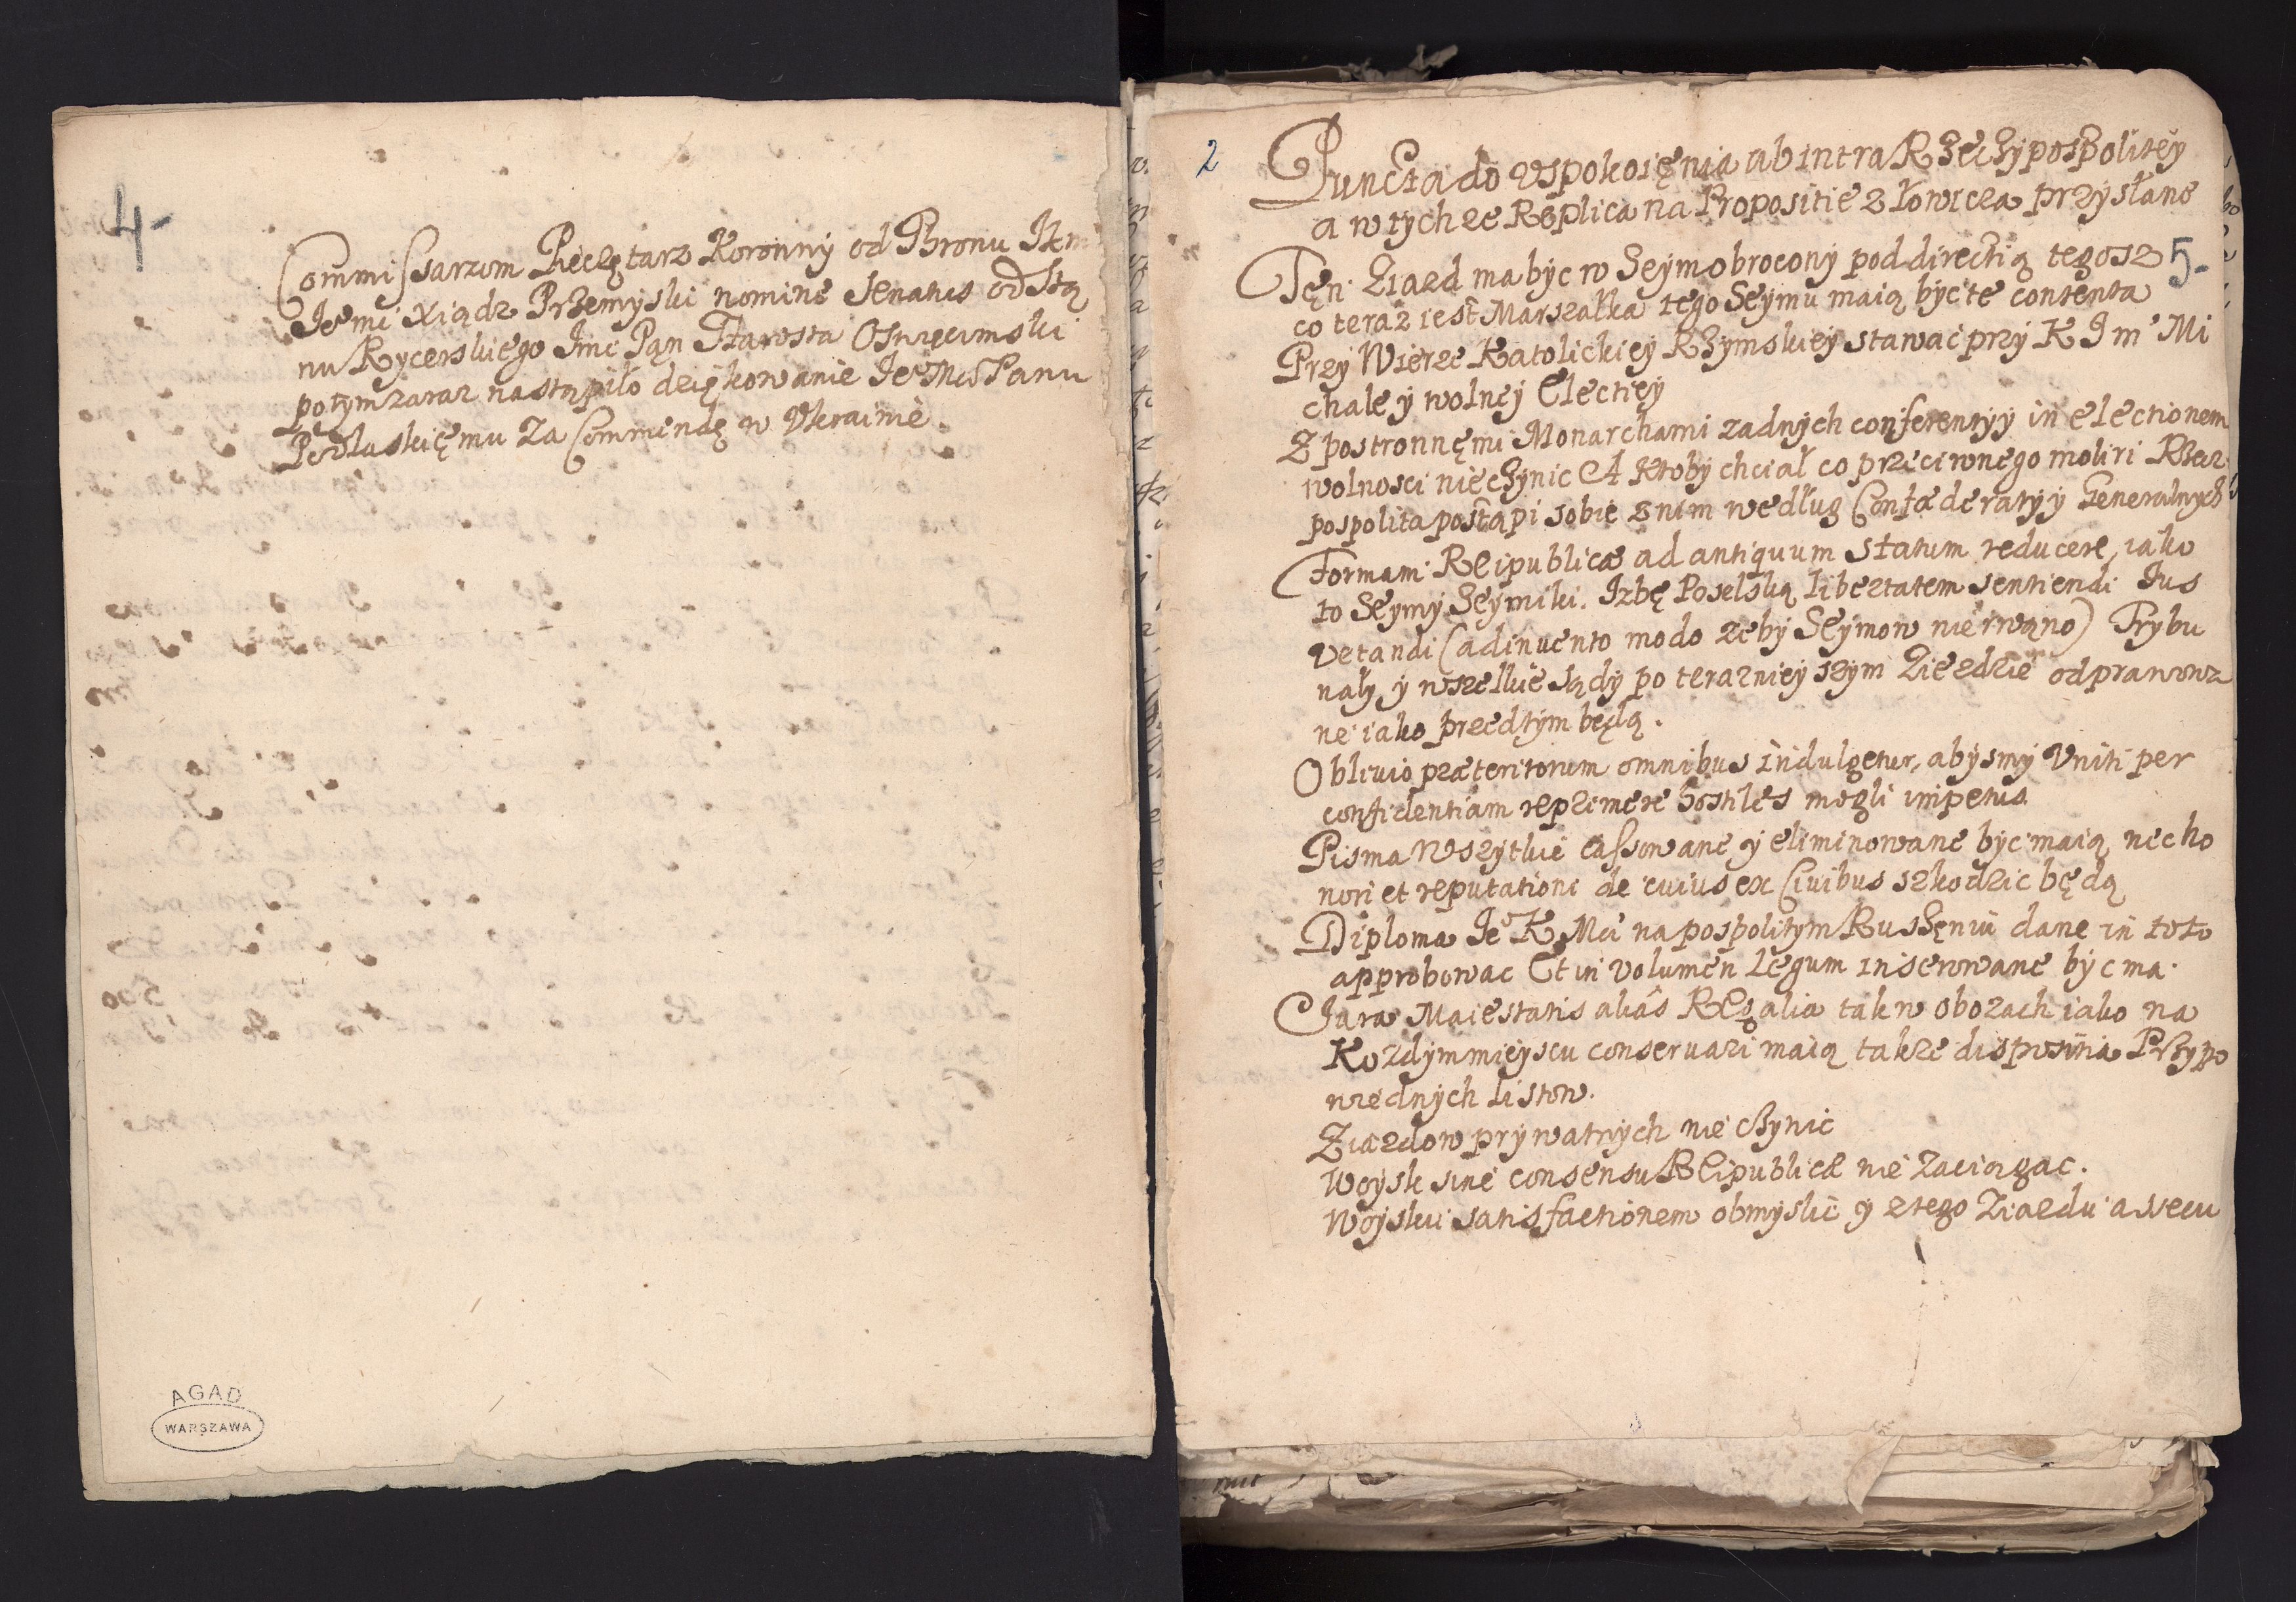 4-
Commissarzom Pieczętarz Koronny od Thronu Jkm
Jeo mć Xiądz Przemyski nomine Senatus od Sta
nu Rycerskiego Jmć Pąn Starosta Osnięcimski
potym zaraz nastąpiło dziękowanie Jeo Mci Panu
Podlaskięmu Za Commendę w Vkrainie.
AGAD
WARSZAWA
2
Puncta do vspokoięnia ab intra Rzeczypospolitey
a w tychze Replica na Propositie z Łowicza przysłane
Tęn Ziazd ma byc w Seym obrocony pod directią tegosz
5-
co teraz iest Marszałka tego Seymu maią byc te contenta
Przy Wierze Katolickiey Rzymskiey stawać przy K J m Mi
chale y wolney Electiey
Z postronnęmi Monarchami zadnych conferentyy in electionem
wolnosci nie czynic A Ktoby chciał co przeciwnego moliri Rzecz
pospolita postąpi sobie z nim według Confæderatyy Generalnych
Formam Reipublicæ ad antiquum statum reducere, iako
to Seymy Seymiki. Izbę Poselską libertatem sentiendi Ius
vetandi (adinuento modo zeby Seymow nie rwąno) Trybu
nały y wszelkie sądy po teraznieyszym Ziezdzie odprawowa
ne iako przedtym będą.
Obliuio præteritorum omnibus indulgetur, abysmy vniti per
confidentiam reprimere hostiles mogli impetus
Pisma wszytkie cassowane y eliminowane byc maią nec ho
nori et reputationi de cuius ex Ciuibus szkodzic będą
Diploma Jeo K Mci na pospolitym Ruszęniu dane in toto
approbowac Et in volumen Legum inserowane byc ma.
Jura Maiestatis aliâs Regalia tak w obozach iako na
Kozdym mieyscu conseruari maią takze dispositia Przypo
wiednych listow.
Ziazdow prywatnych nie czynic
Woysk sine consensu Reipublicæ nie zaciągac.
Woysku satisfactionem obmyslic y z tego Ziazdu assecu